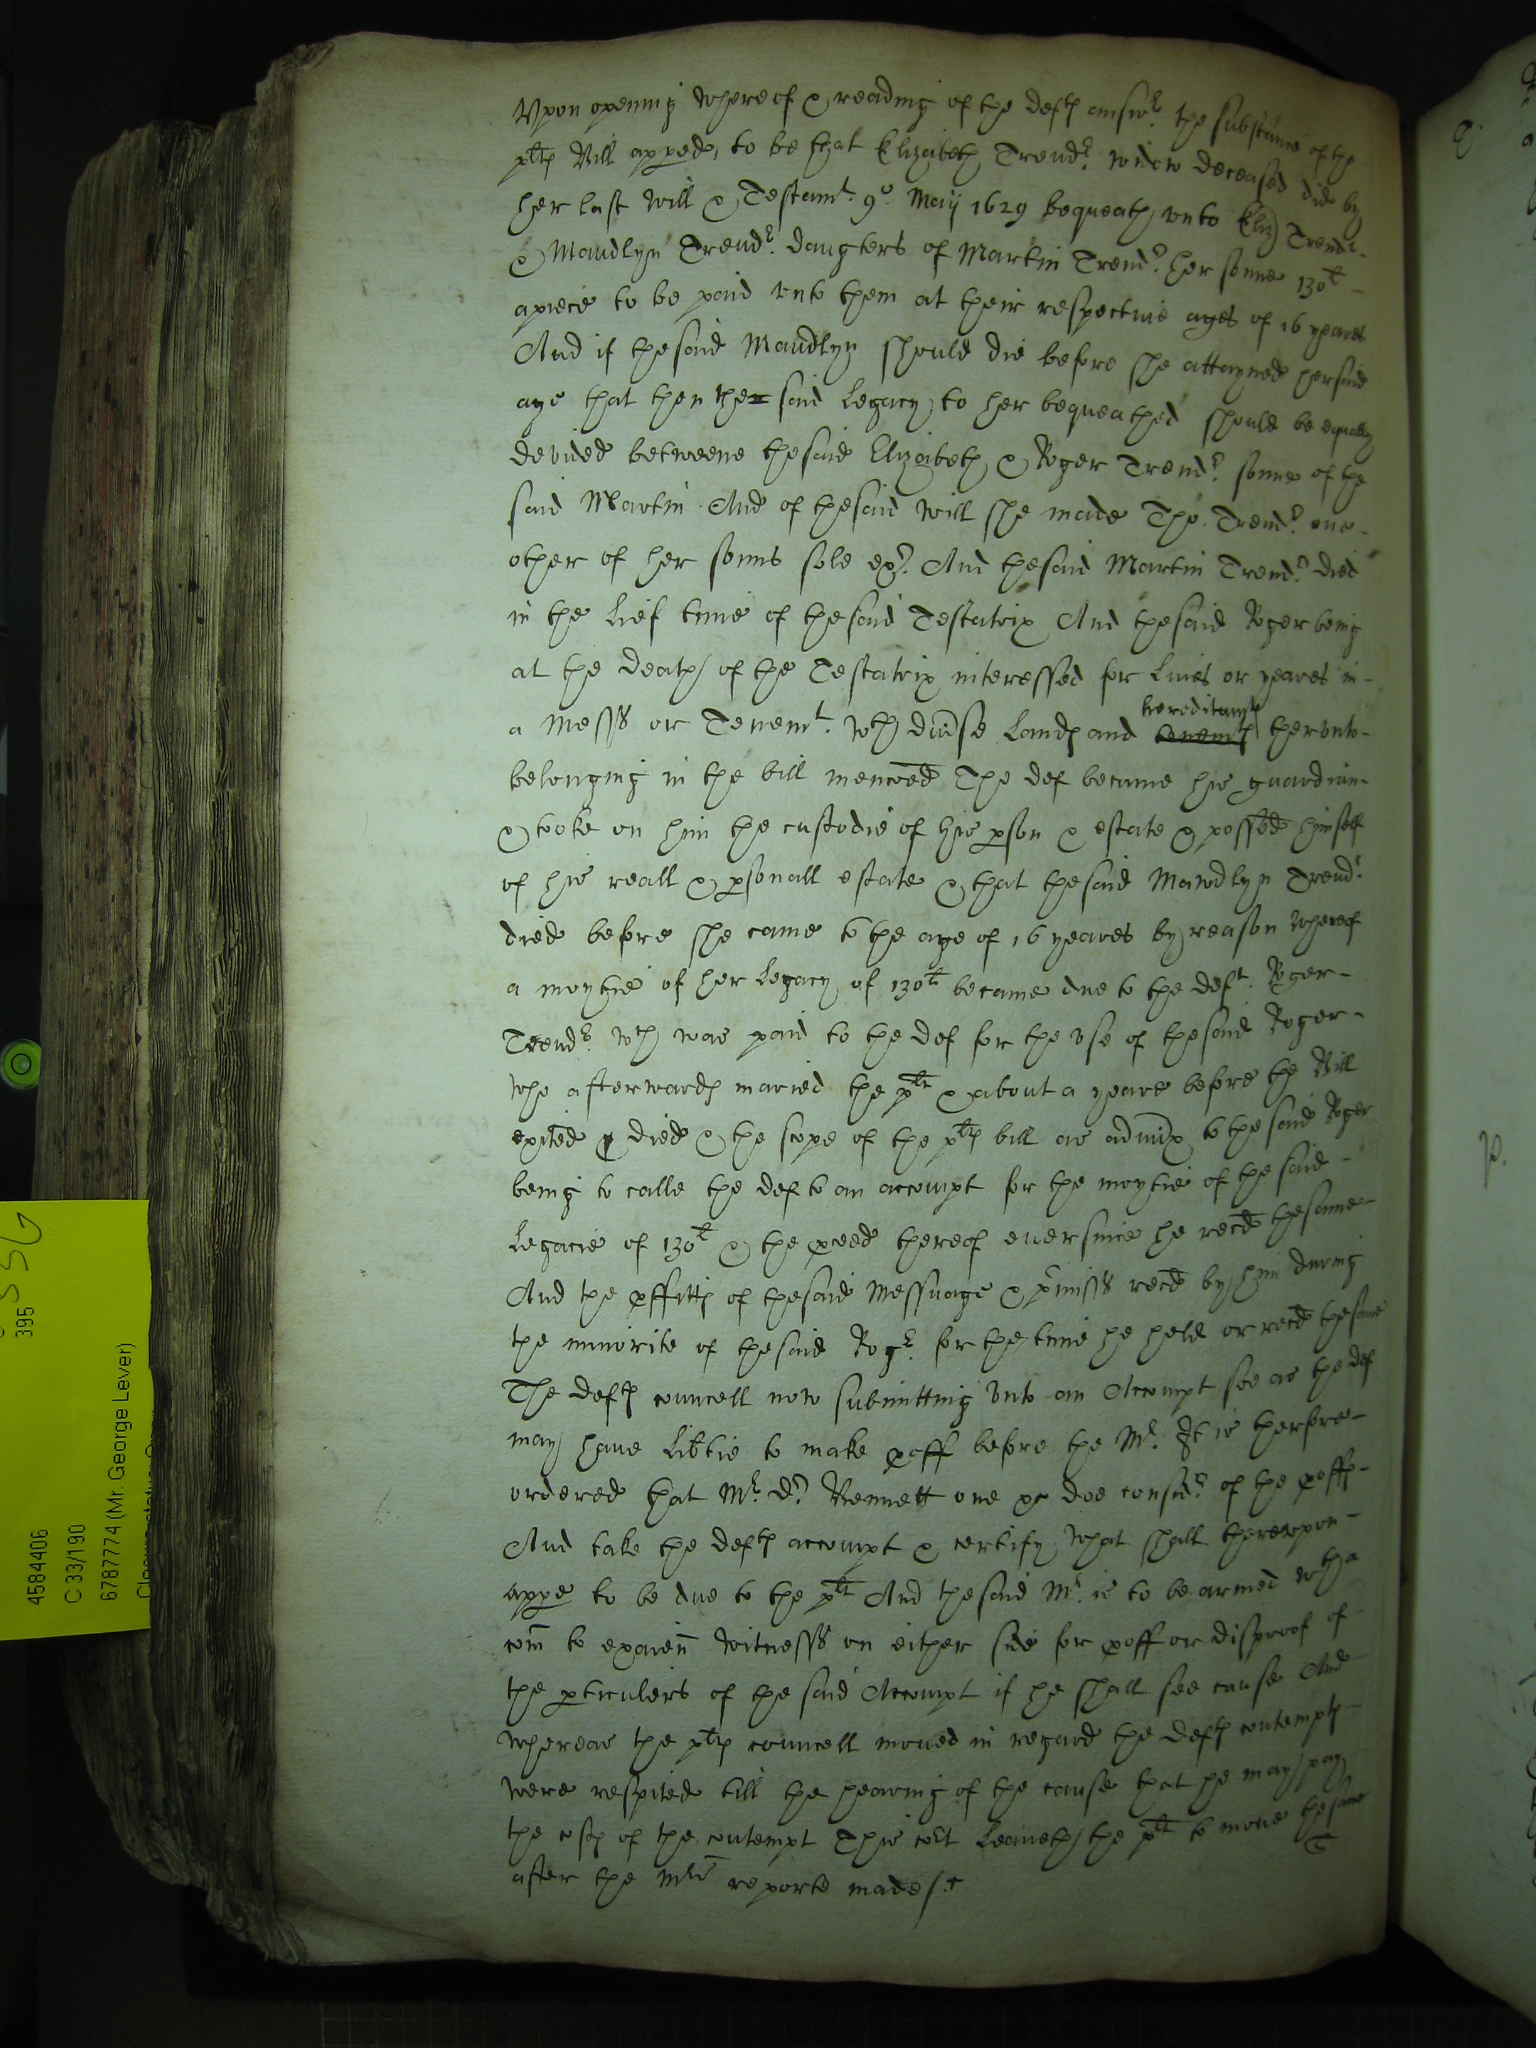 Vpon opening whereof & reading of the defts answr. the substance of the
plts Bill apped, to be that Elizabeth Trendr. widow deceased did by
her last will & Testamt. 9o. Maij 1629 bequeath vnto Eliz Trendr.
& Maudlyn Trendr. daugters of Martin Trendr. her sonne 130l
apeice to be paid vnto them at their respectiue ages of 16 yeares
And if the said Maudlyn should die before she attayned her said
age that then the said Legacy to her bequeathed should be equally
deuided betweene the said Elizabeth & Roger Trendr. sonne of the
said Martin And of the said will she made Tho. Trendr. one
other of her sonns sole exr. And the said Martin Trendr. died
in the Lief time of the said Testatrix And the said Roger being
at the death of the Testatrix interessed for Liues or yeares in
a Mess or Tenemt. wth diuse Lands and tenemts hereditamts therunto
belonging in the bill menc̄oed The def became his guardian
& tooke on him the custodie of his pson & estate & possed himself
of his reall & psonall estate & that the said Mawdlyn Trendr.
died before she came to the age of 16 yeares by reason whereof
a moytie of her Legacy of 130l became due to the deft. Roger
Trendr. wch was paid to the def for the vse of the said Roger
who afterwards maried the plt & about a yeare before the Bill
exited & died & the scope of the plts bill as admx to the said Roger
being to calle the def to an accompt for the moytie of the said
Legacie of 130l & the pceed thereof euer since he recd the same
And the pffitts of the said Messuage & pmisss recd by him during
the minorite of the said Rogr. for the time he held or recd the same
The defts councell now submitting vnto an Accompt soe as the def
may haue Libtie to make pooff before the Mr. It is therfore
ordered that Mr. Dr. Bennett one &c doe considr. of the pooffs
And take the defts accompt & certify what shall therevpon
appe to be due to the plt And the said Mr. is to be armed wth a
com̄ to exaien witnesss on either side for pooff or disproof of
the pticulers of the said Accompt if he shall see cause And
whereas the plts councell moued in regard the defts contempts
were respited till the hearing of the cause that he may pay
the costs of the contempt This cort Leaueth the plt to moue the same
after the Mrs reporte made/.
395
4584406
C 33/190
6787774 (Mr. George Lever)